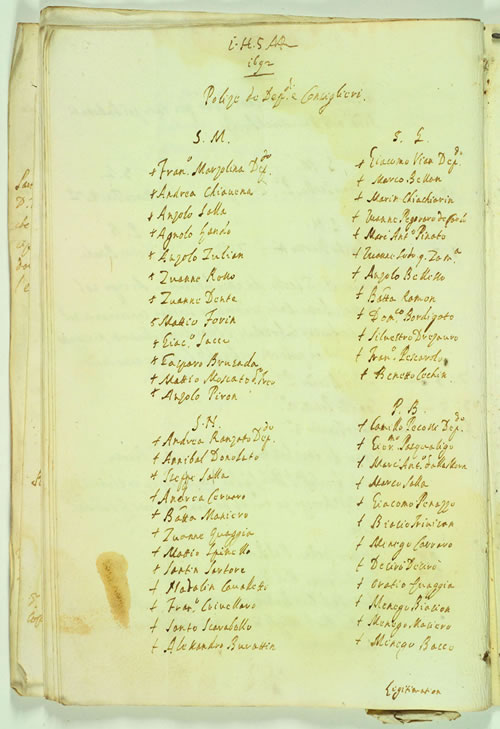 1692
Polize de Dep.ti e Consiglieri.
S. M.
+ Fran.o Marzolina Dep.do
+ Andrea Chiavena
+ Angolo Salla
+ Agnolo
+ Angolo Zulian
+ Zuanne Rosso
+ Zuanne Dente
+ Mattio Forin
+ Giac.o Sacco
+ Gasparo Bruenda
+ Mattio Moscato
+ Angolo Piron
S. N.
+ Andrea Ranzato Dep.do
+ Annibal Donobato
+ Iseppe Salla
+ Andrea Cervaro
+ Batta Maniero
+ Zuanne Quaggia
+ Mattio Spinello
+ Santin Sartore
+ Nadalin Cavaletto
+ Fran.o Crivellaro
+ Santo Scarabello
+ Alessandro Burattin
S. L.
+ Giacomo Vian Dep.do
+ Marco Bellon
+ Marin Chiachiarin
+ Zuanne Pegoraro
+ Marc Ant.o Pinato
+ Zuanne
+ Angolo Belletto
+ Batta Ramon
+ Dom.co Bordigato
+ Silvestro
+ Fran.o Pescarolo
+ Benetto Cechin
P. B.
+ Camillo Dep.do
+ Pasqualigo
+ Marc Ant.o
+ Marco Salla
+ Giacomo Penazzo
+ Biasio Trivison
+ Menego Carraro
+ Desirò Desirò
+ Oratio Quaggia
+ Menego
+ Menego Maniero
+ Menego Bacco
Legitimation